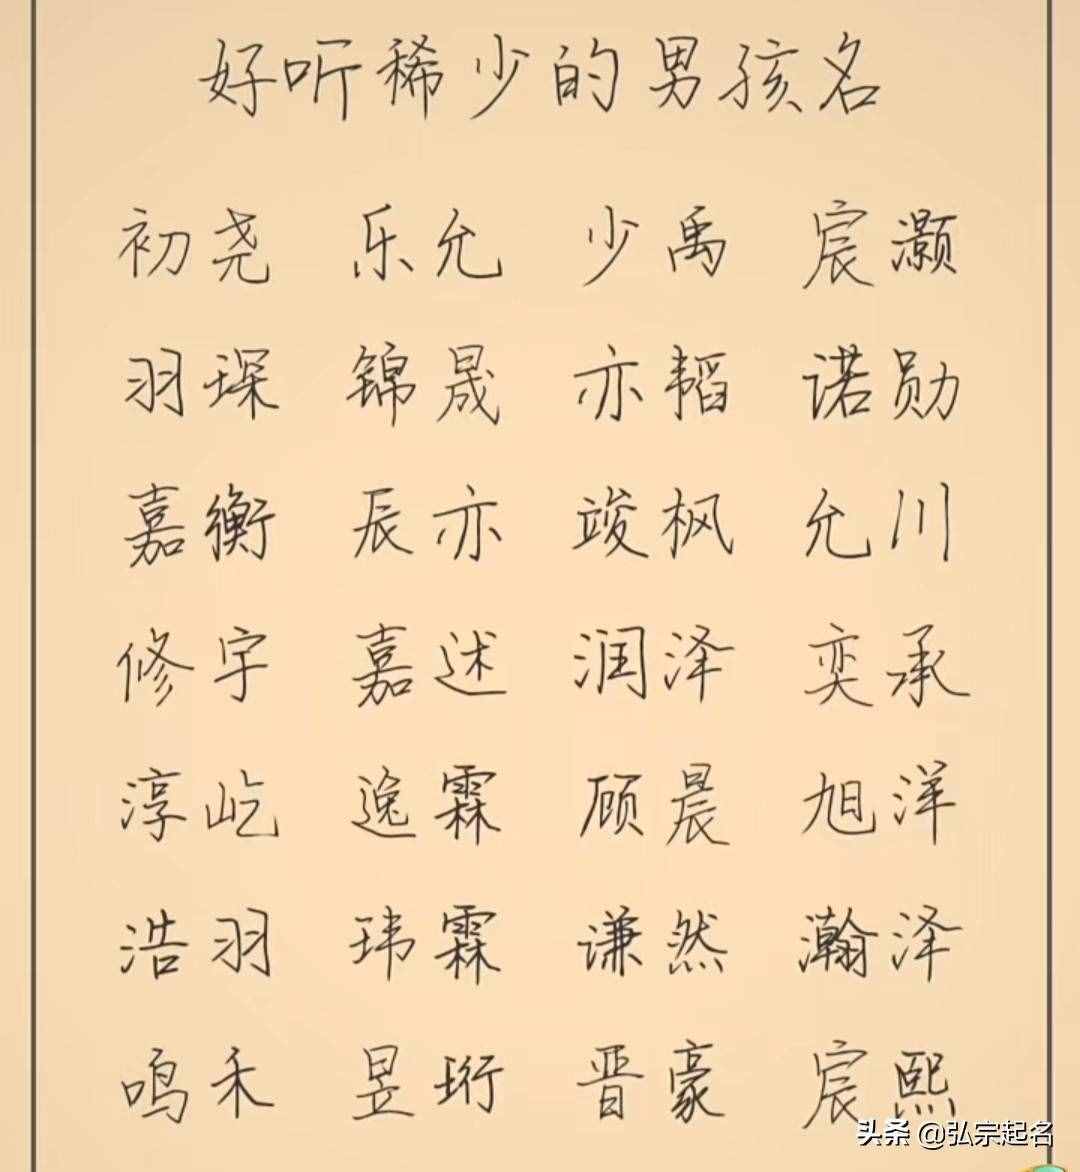 好听稀少的男孩名
初尧 乐允 少禹 宸灏
羽琛 锦晟 亦韬 诺勋
嘉衡 辰亦 竣枫 允川
修宇 嘉述 润泽 奕承
淳屹 逸霖 顾晨 旭洋
浩羽 玮霖 谦然 瀚泽
鸣禾 昱珩 晋豪 宸熙
头条 @弘宗起名